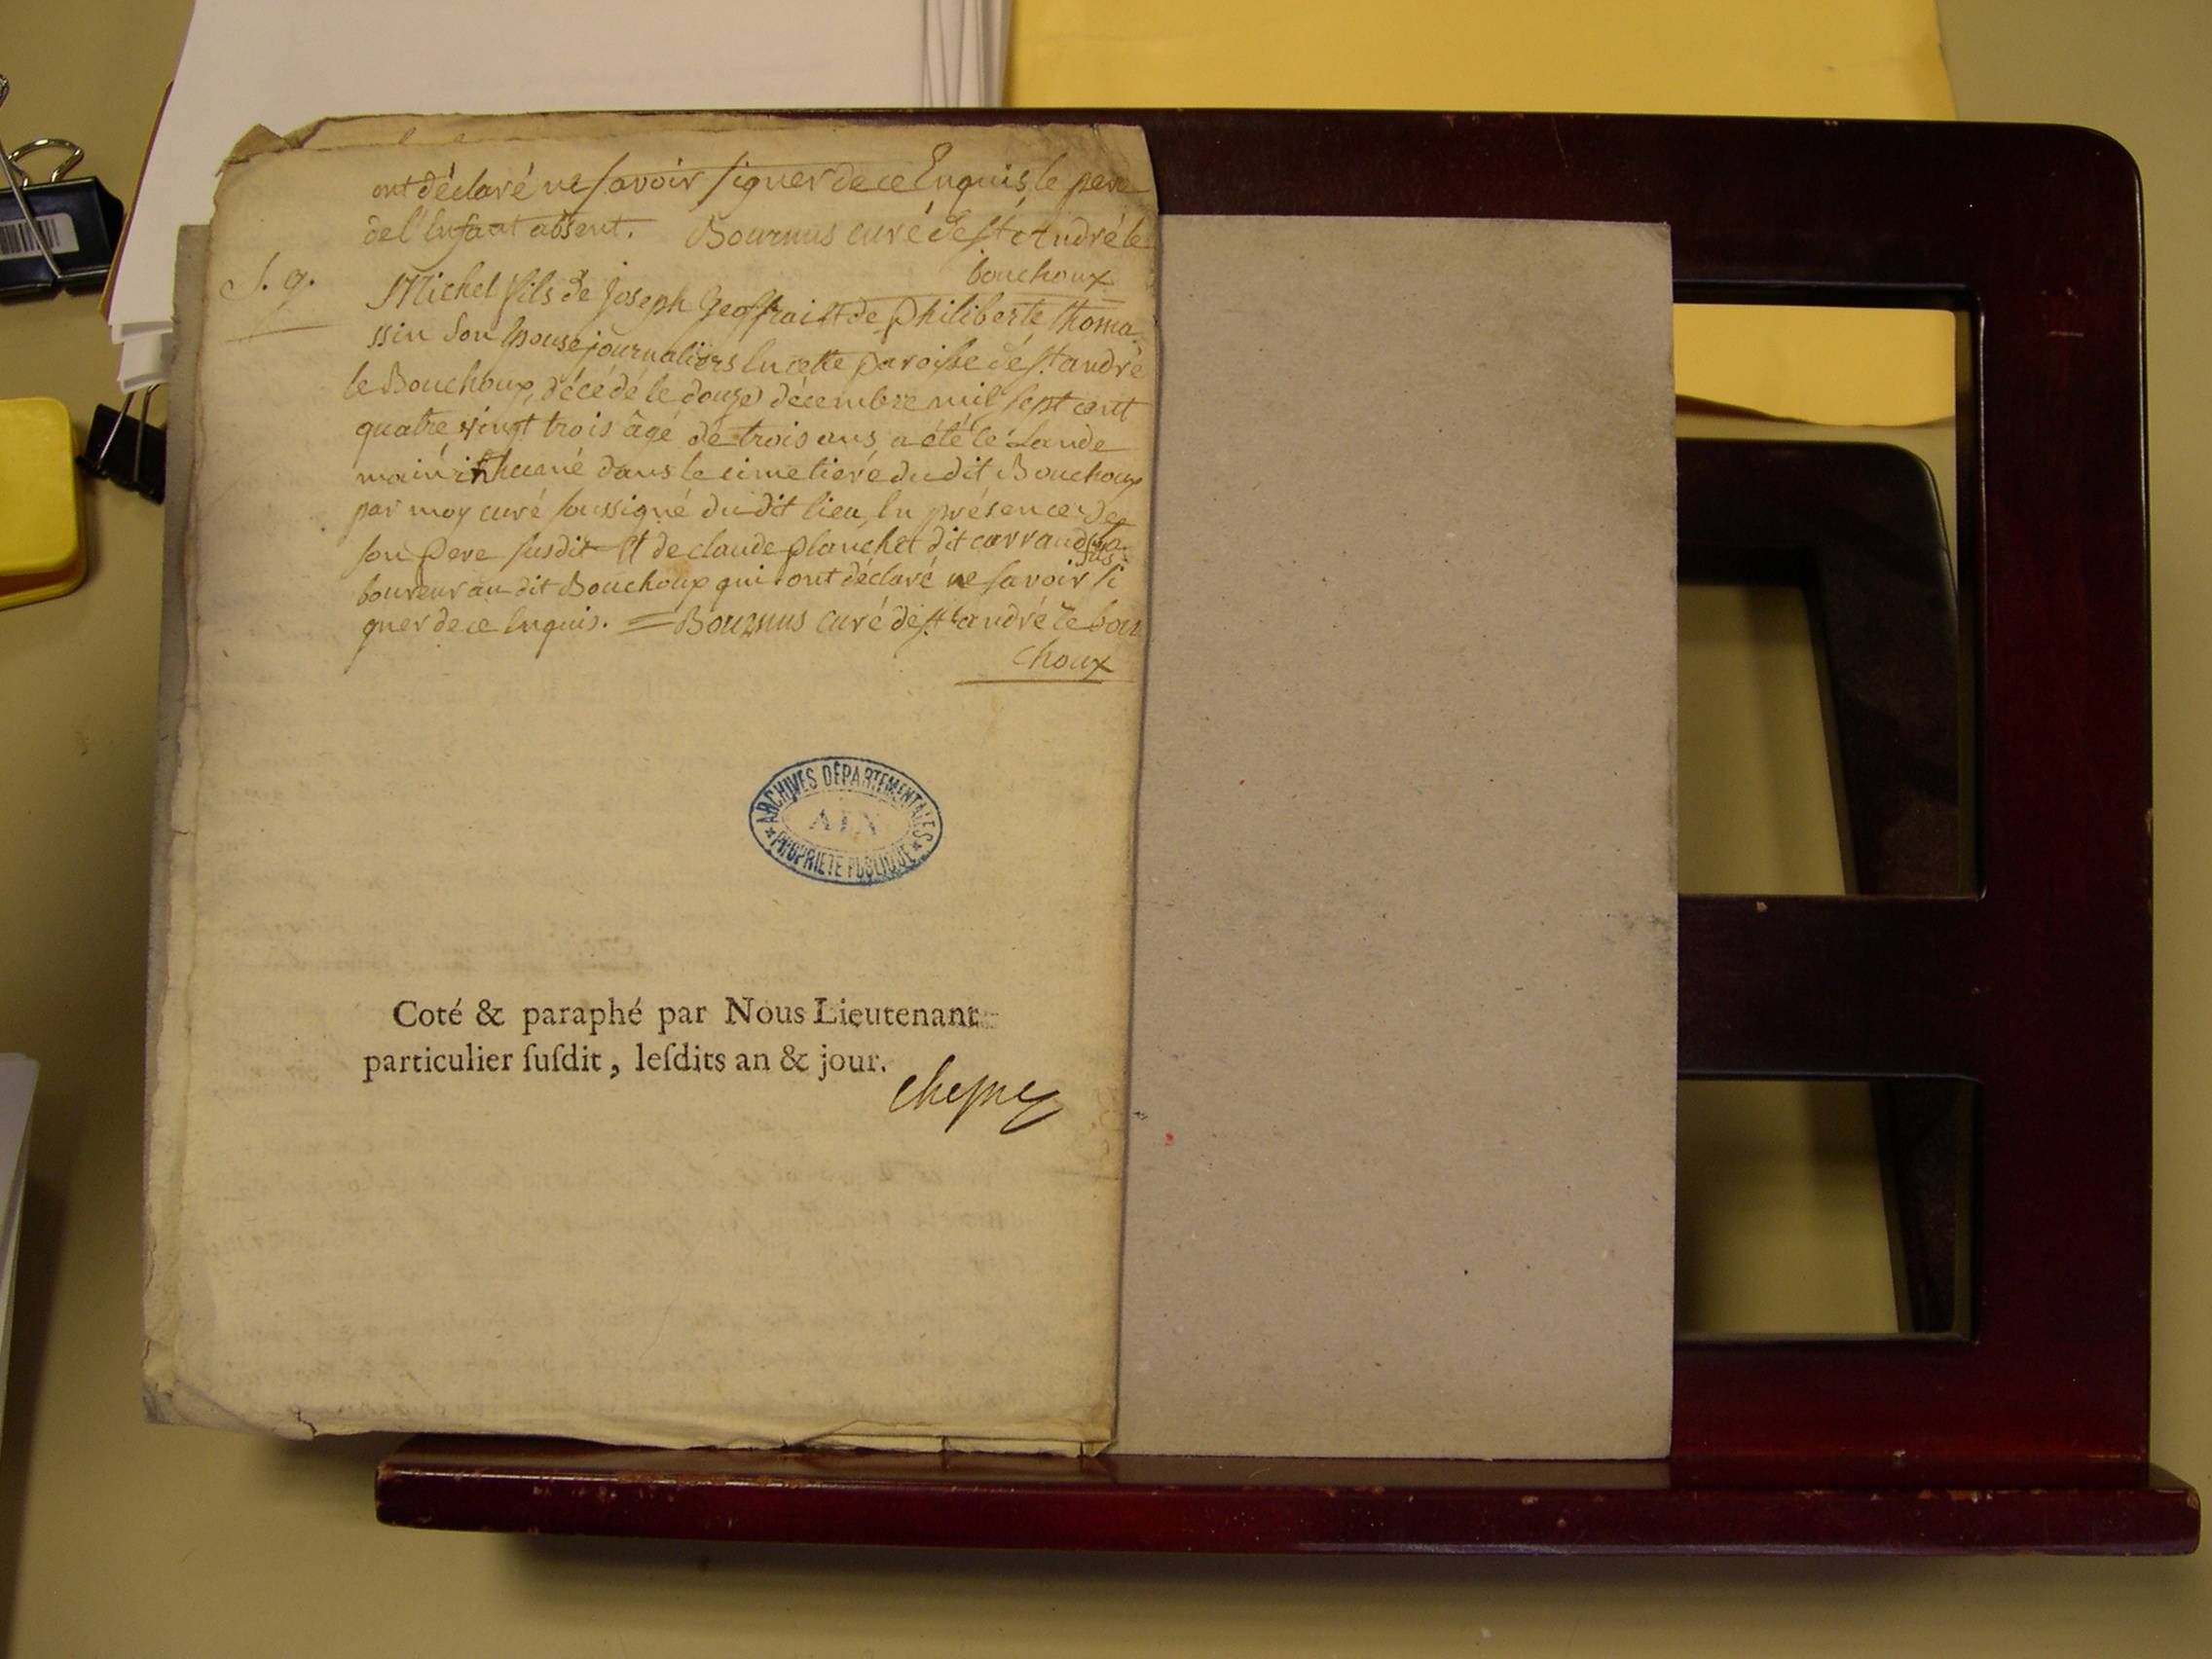 ont déclaré ne savoir signer de ce Enquis, le pere
de l'Enfant absent. Bournus curé de st André le
bouchoux
S. 9.
Michel fils de joseph Geoffrai Et de philiberte thoma
ssin son Epouse journaliers En cette paroisse de st. andré
le Bouchoux, décédé le douze décembre mil sept cent
quatre vingt trois âgé de trois ans, a été le Lande
main inhumé dans le cimetiere du dit Bouchoux
par moy curé soussigné du dit lieu, En présence de
son pere susdit Et de claude planchet dit carraud la
boureur au dit Bouchoux qui ont déclaré ne savoir si
gner de ce Enquis. = Bournus curé de st andré le bou
choux
ARCHIVES DÉPARTEMENTALES
AIN
* PROPRIÉTÉ PUBLIQUE *
Coté & paraphé par Nous Lieutenant
particulier ſuſdit, leſdits an & jour.